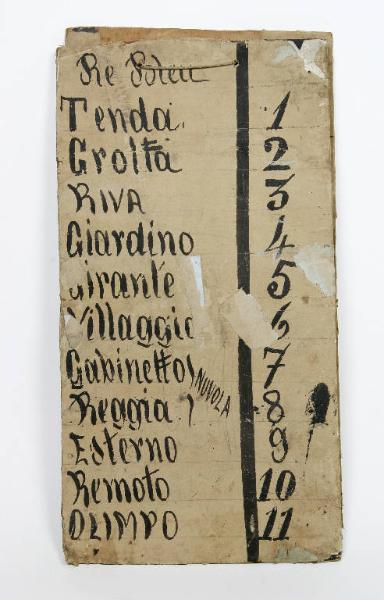 Re
Tenda. 1
Grotta 2
RIVA 3
Giardino 4
Girante 5
Villaggio 6
Gabinetto) 7
NUVOLA
Reggia) 8
Esterno 9
Remoto 10
OLIMPO 11